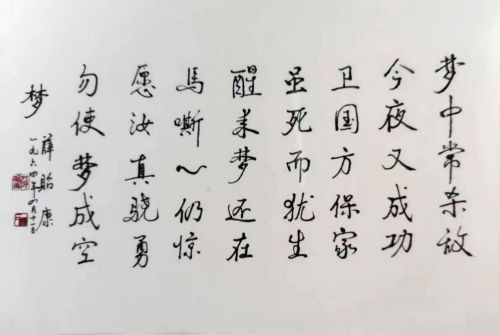 梦中常杀敌
今夜又成功
卫国方保家
虽死而犹生
醒来梦还在
馬嘶~仍惊
愿汝真骁勇
勿使梦成空
梦
薛贻康
一九六四年